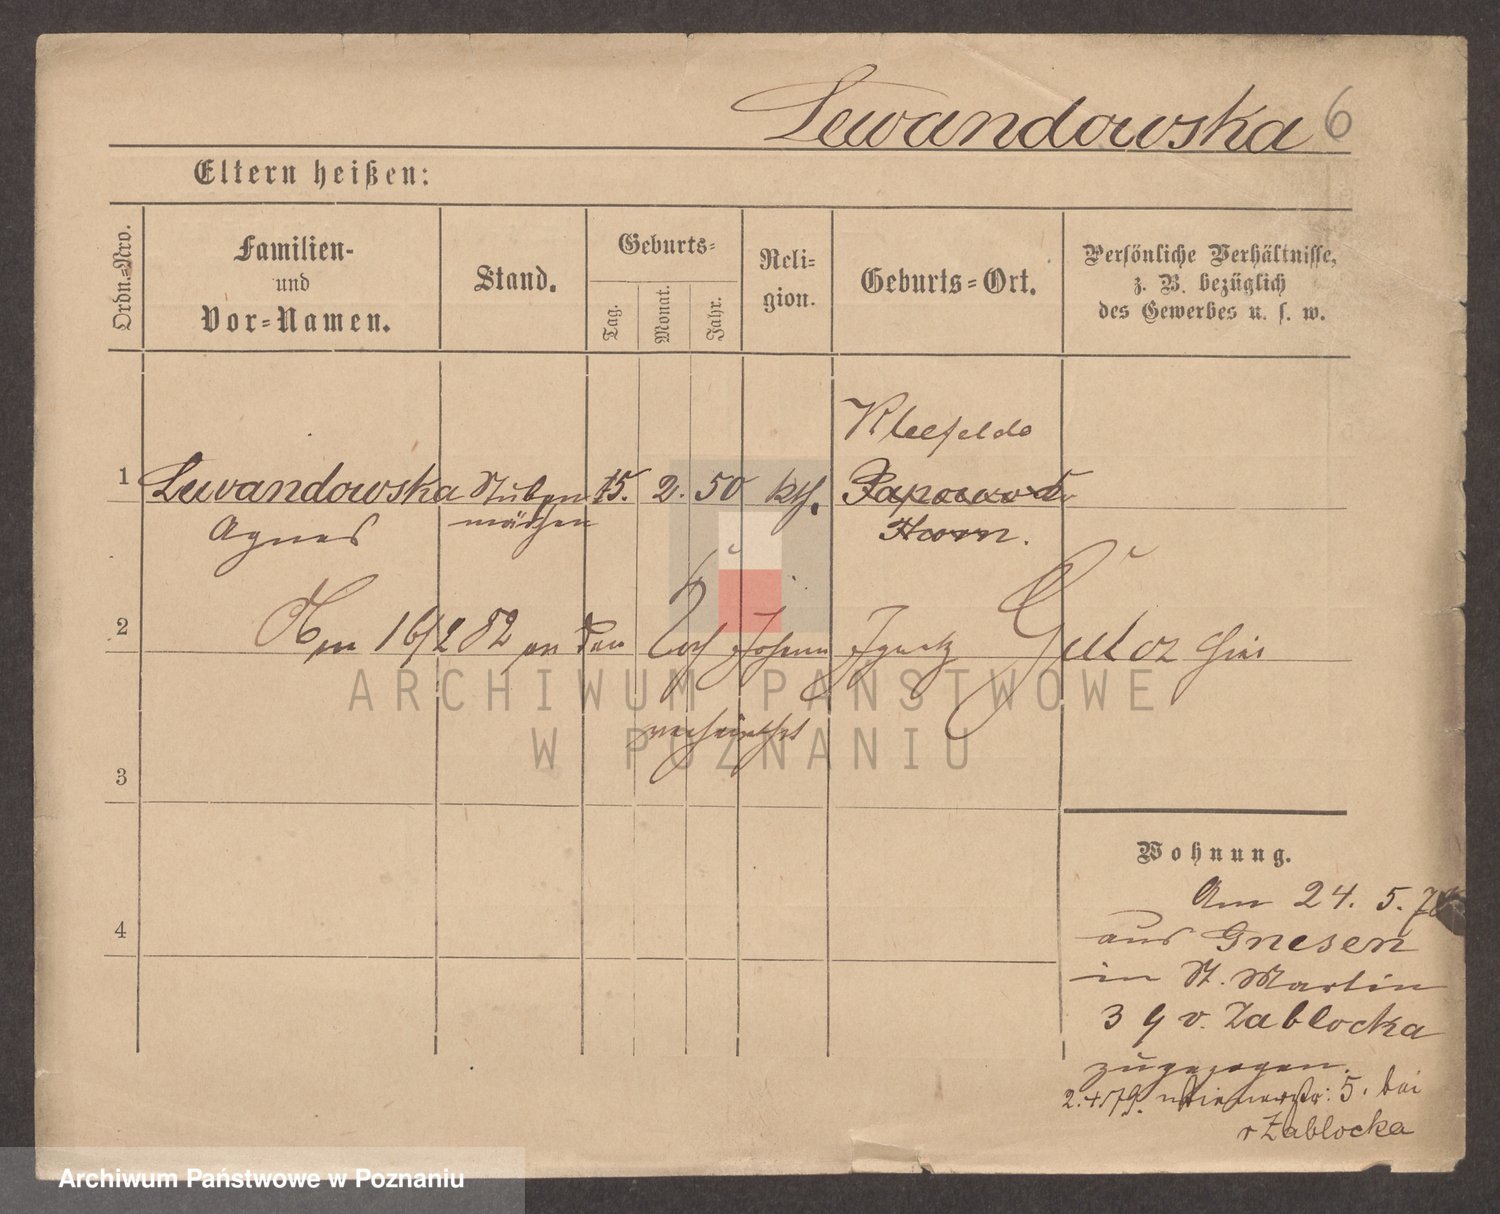 Lewandowska 6
Eltern heißen:
Ordn.=Nro.
Familien-
und
Vor=Namen.
Stand.
Geburts=
Tag.
Monat.
Jahr.
Reli=
gion.
Geburts=Ort.
Persönliche Verhältnisse,
z. B. bezüglich
des Gewerbes u. s. w.
Kleefelde
1 Lewandowska Stuben 15. 2. 50 kth. Papowo
Agnes mädchen Thorn.
2 Am 16/2 82 an den Koch Johann Ignatz
verheirathet
3
4
Wohnung.
Am 24. 5.
aus Gnesen
in St. Martin
3 9 v. Zablocka
zugezogen.
2. 4 79. 5. bei
v Zablocka
ARCHIWUM PAŃSTWOWE
W POZNANIU
Archiwum Państwowe w Poznaniu